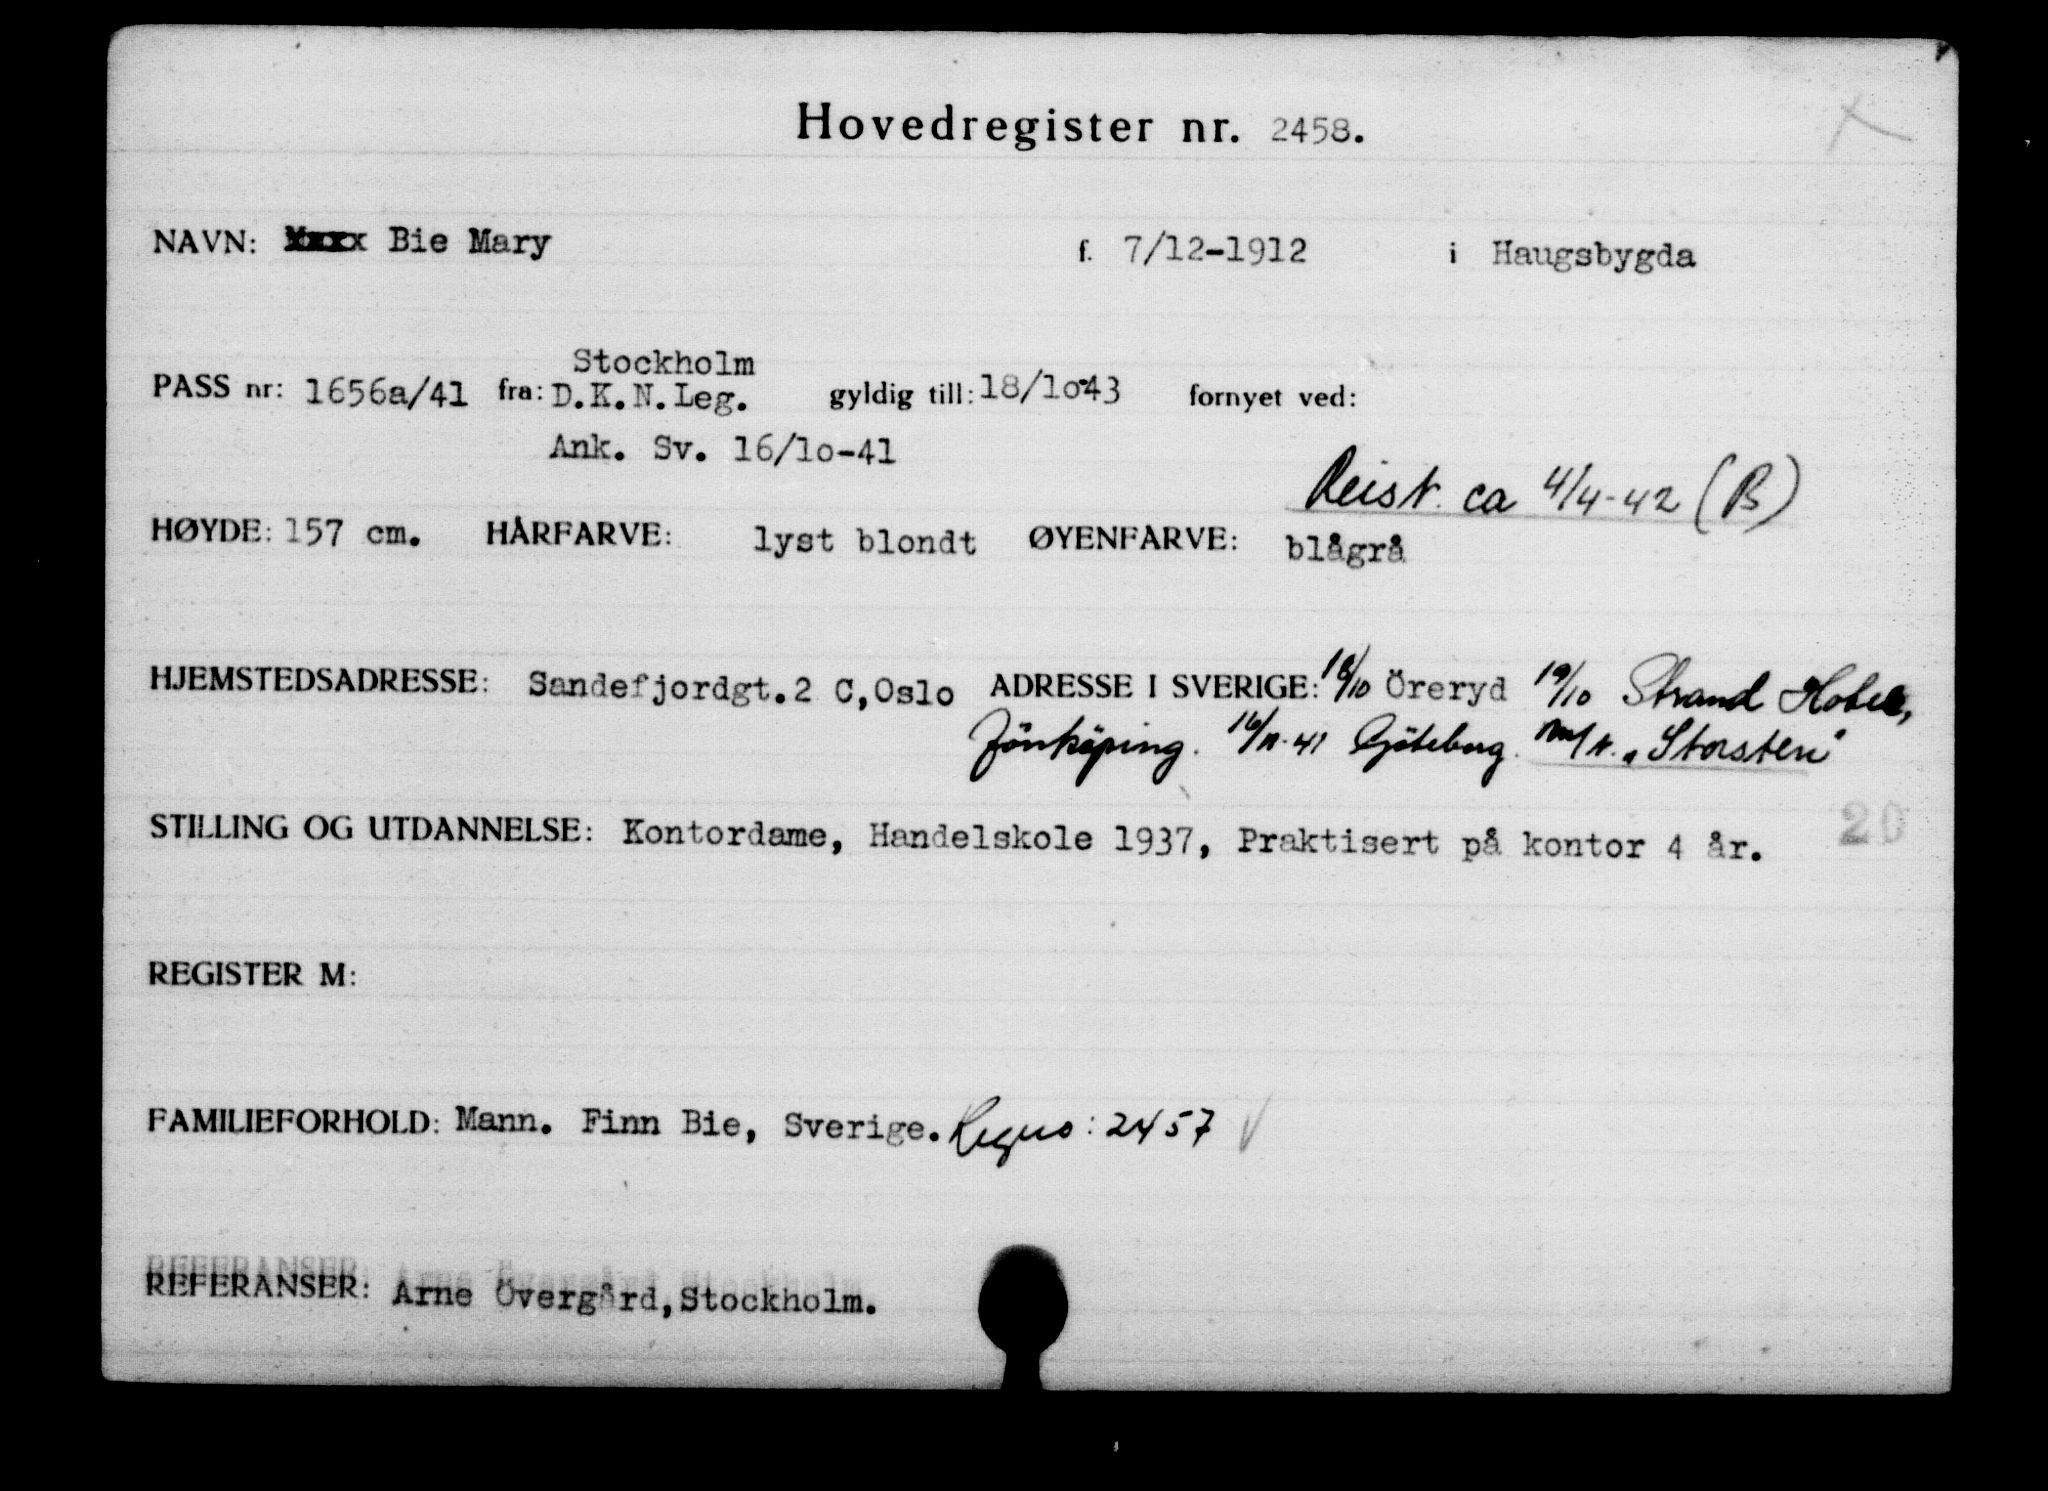 Hovedregister nr. 2458.
NAVN: Bie Mary f. 7/12-1912 i Haugsbygda
Stockholm
PASS nr: 1656a/41 fra: D.K.N.Leg. gyldig till: 18/10-43 fornyet ved:
Ank. Sv. 16/10-41
Reist. ca 4/4-42 (B)
HØYDE: 157 cm. HÅRFARVE: lyst blondt ØYENFARVE: blågrå
HJEMSTEDSADRESSE: Sandefjordgt.2 C,Oslo ADRESSE I SVERIGE: 18/10 Öreryd 19/10 Strand Hotell,
Jönköping. 16/11-41 Göteborg. M/k. „Storsten"
STILLING OG UTDANNELSE: Kontordame, Handelskole 1937, Praktisert på kontor 4 år.
20
REGISTER M:
FAMILIEFORHOLD: Mann. Finn Bie, Sverige. : 2457
REFERANSER: Arne Övergård,Stockholm.